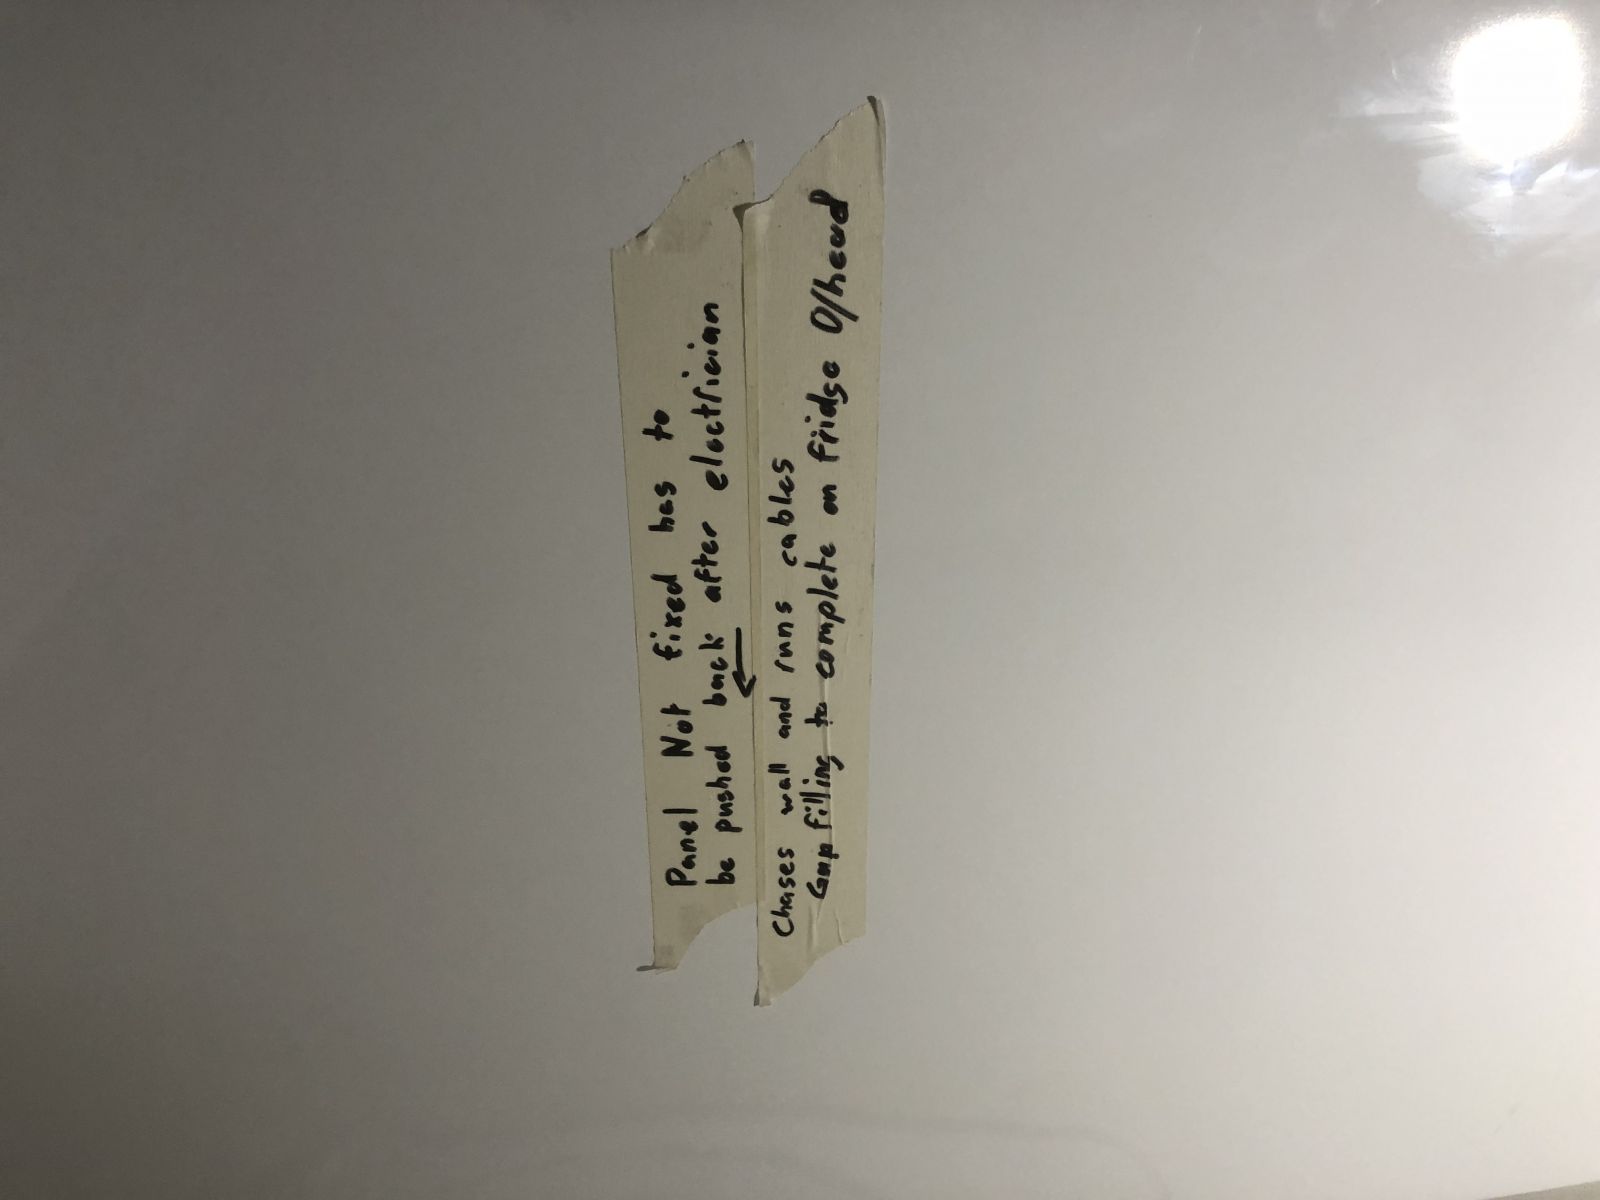 Panel Not fixed has to
be pushed back after electrician
←
Chases wall and runs cables
Gap filling to complete on fridge O/head